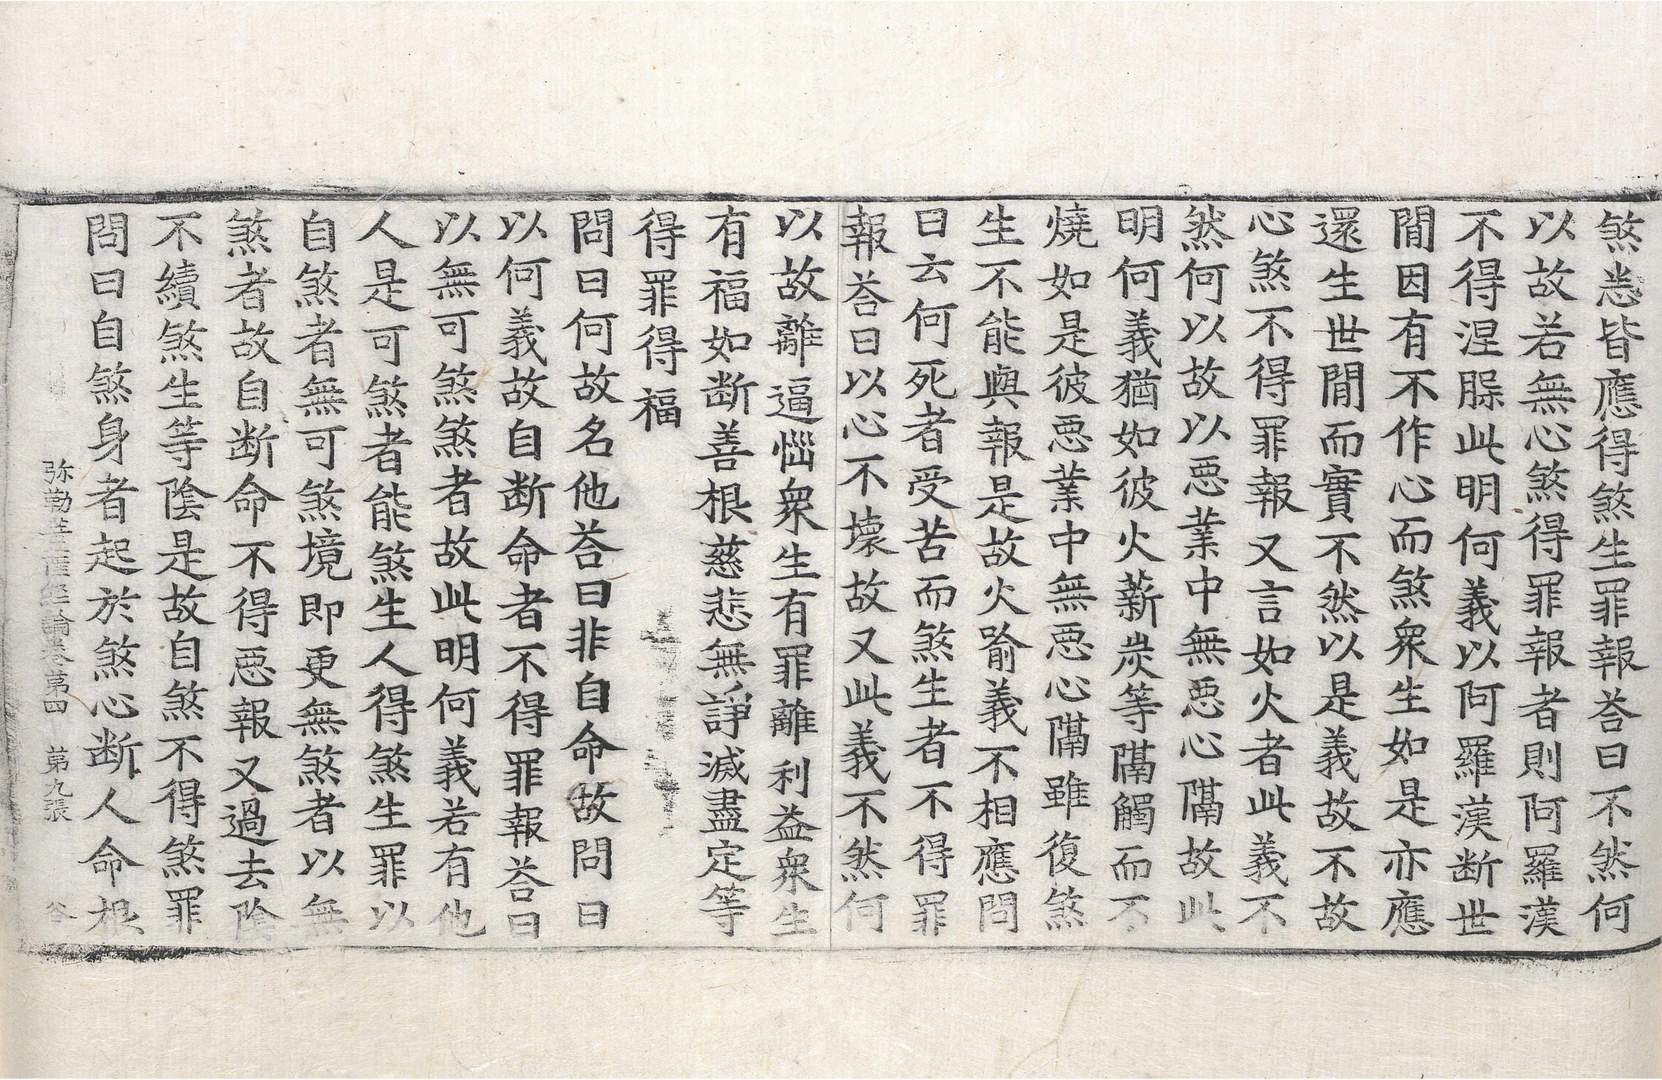 煞恙皆應得煞生罪報荅曰不然何
以故若無心煞得罪報者則阿羅漢
不得涅脲此明何義以阿羅漢断世
間因有不作心而煞衆生如是亦應
還生世間而實不然以是義故不故
心煞不得罪報又言如火者此義不
然何以故以惡業中無惡心隔故此
明何義猶如彼火薪炭等隔觸而不
燒如是彼惡業中無惡心隔雖復煞
生不能與報是故火喻義不相應問
曰云何死者受苦而煞生者不得罪
報荅曰以心不壞故又此義不然何
以故離逼惱衆生有罪離利益衆生
有福如断善根慈悲無諍滅盡定等
得罪得福
問曰何故名他荅曰非自命故問曰
以何義故自断命者不得罪報荅曰
以無可煞煞者故此明何義若有他
人是可煞者能煞生人得煞生罪以
自煞者無可煞境即更無煞者以無
煞者故自断命不得惡報又過去陰
不續煞生等陰是故自煞不得煞罪
弥勒菩薩經論卷第四 第九張 谷
問曰自煞身者起於煞心断人命根